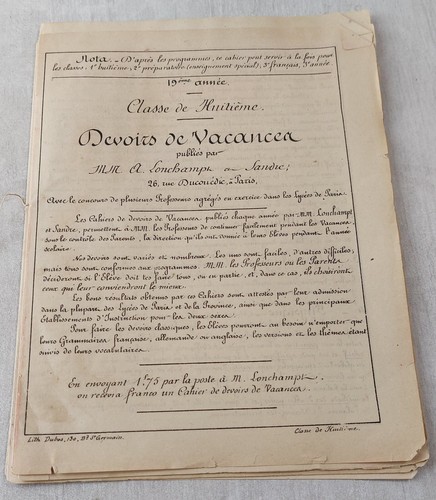 Nota. _ D'après les programmes, ce cahier peut servir à la fois pour
les classes: 1° huitième, 2° préparatoire (enseignement spécial), 3° français, 1re année.
19ème année.
Classe de Huitième.
Devoirs de Vacances
publiés par
MM. A. Lonchampt et Sandre;
26, rue Ducouëdic, à Paris,
Avec le concours de plusieurs Professeurs agrégés en exercice dans les Lycées de Paris.
Les Cahiers de devoirs de Vacances, publiés chaque année par MM. Lonchampt
et Sandre, permettent à MM. les Professeurs de continuer facilement pendant les Vacances
sous le contrôle des Parents, la direction qu'ils ont donnée à leurs Elèves pendant l'année
scolaire.
Nos devoirs sont variés et nombreux. Les uns sont faciles, d'autres difficiles;
mais tous sont conformes aux programmes. MM. les Professeurs ou les Parents
décideront si l'Elève doit les faire tous, ou en partie, et, dans ce cas, ils choisiront
ceux qui leur conviendront le mieux.
Les bons résultats obtenus par ces Cahiers sont attestés par leur admission
dans la plupart des Lycées de Paris et de la Province, ainsi que dans les principaux
Etablissements d'Instruction pour les deux sexes.
Pour faire les devoirs classiques, les Elèves pourront au besoin n'emporter que
leurs Grammaires française, allemande ou anglaise, les versions et les thèmes étant
suivis de leurs vocabulaires.
En envoyant 1f.75 par la poste à M. Lonchampt
on recevra franco un Cahier de devoirs de Vacances.
Lith. Dubos, 130, Bd St Germain.
Classe de Huitième.